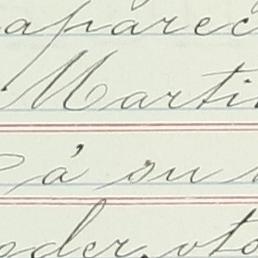 aparec
Marti
á su
oder, oto